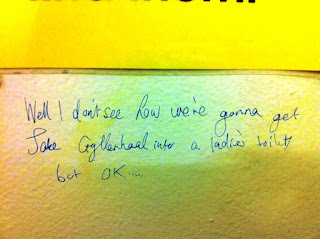 Well I don't see how we're gonna get
Jake Gyllenhaal into a ladies toilet,
but OK....